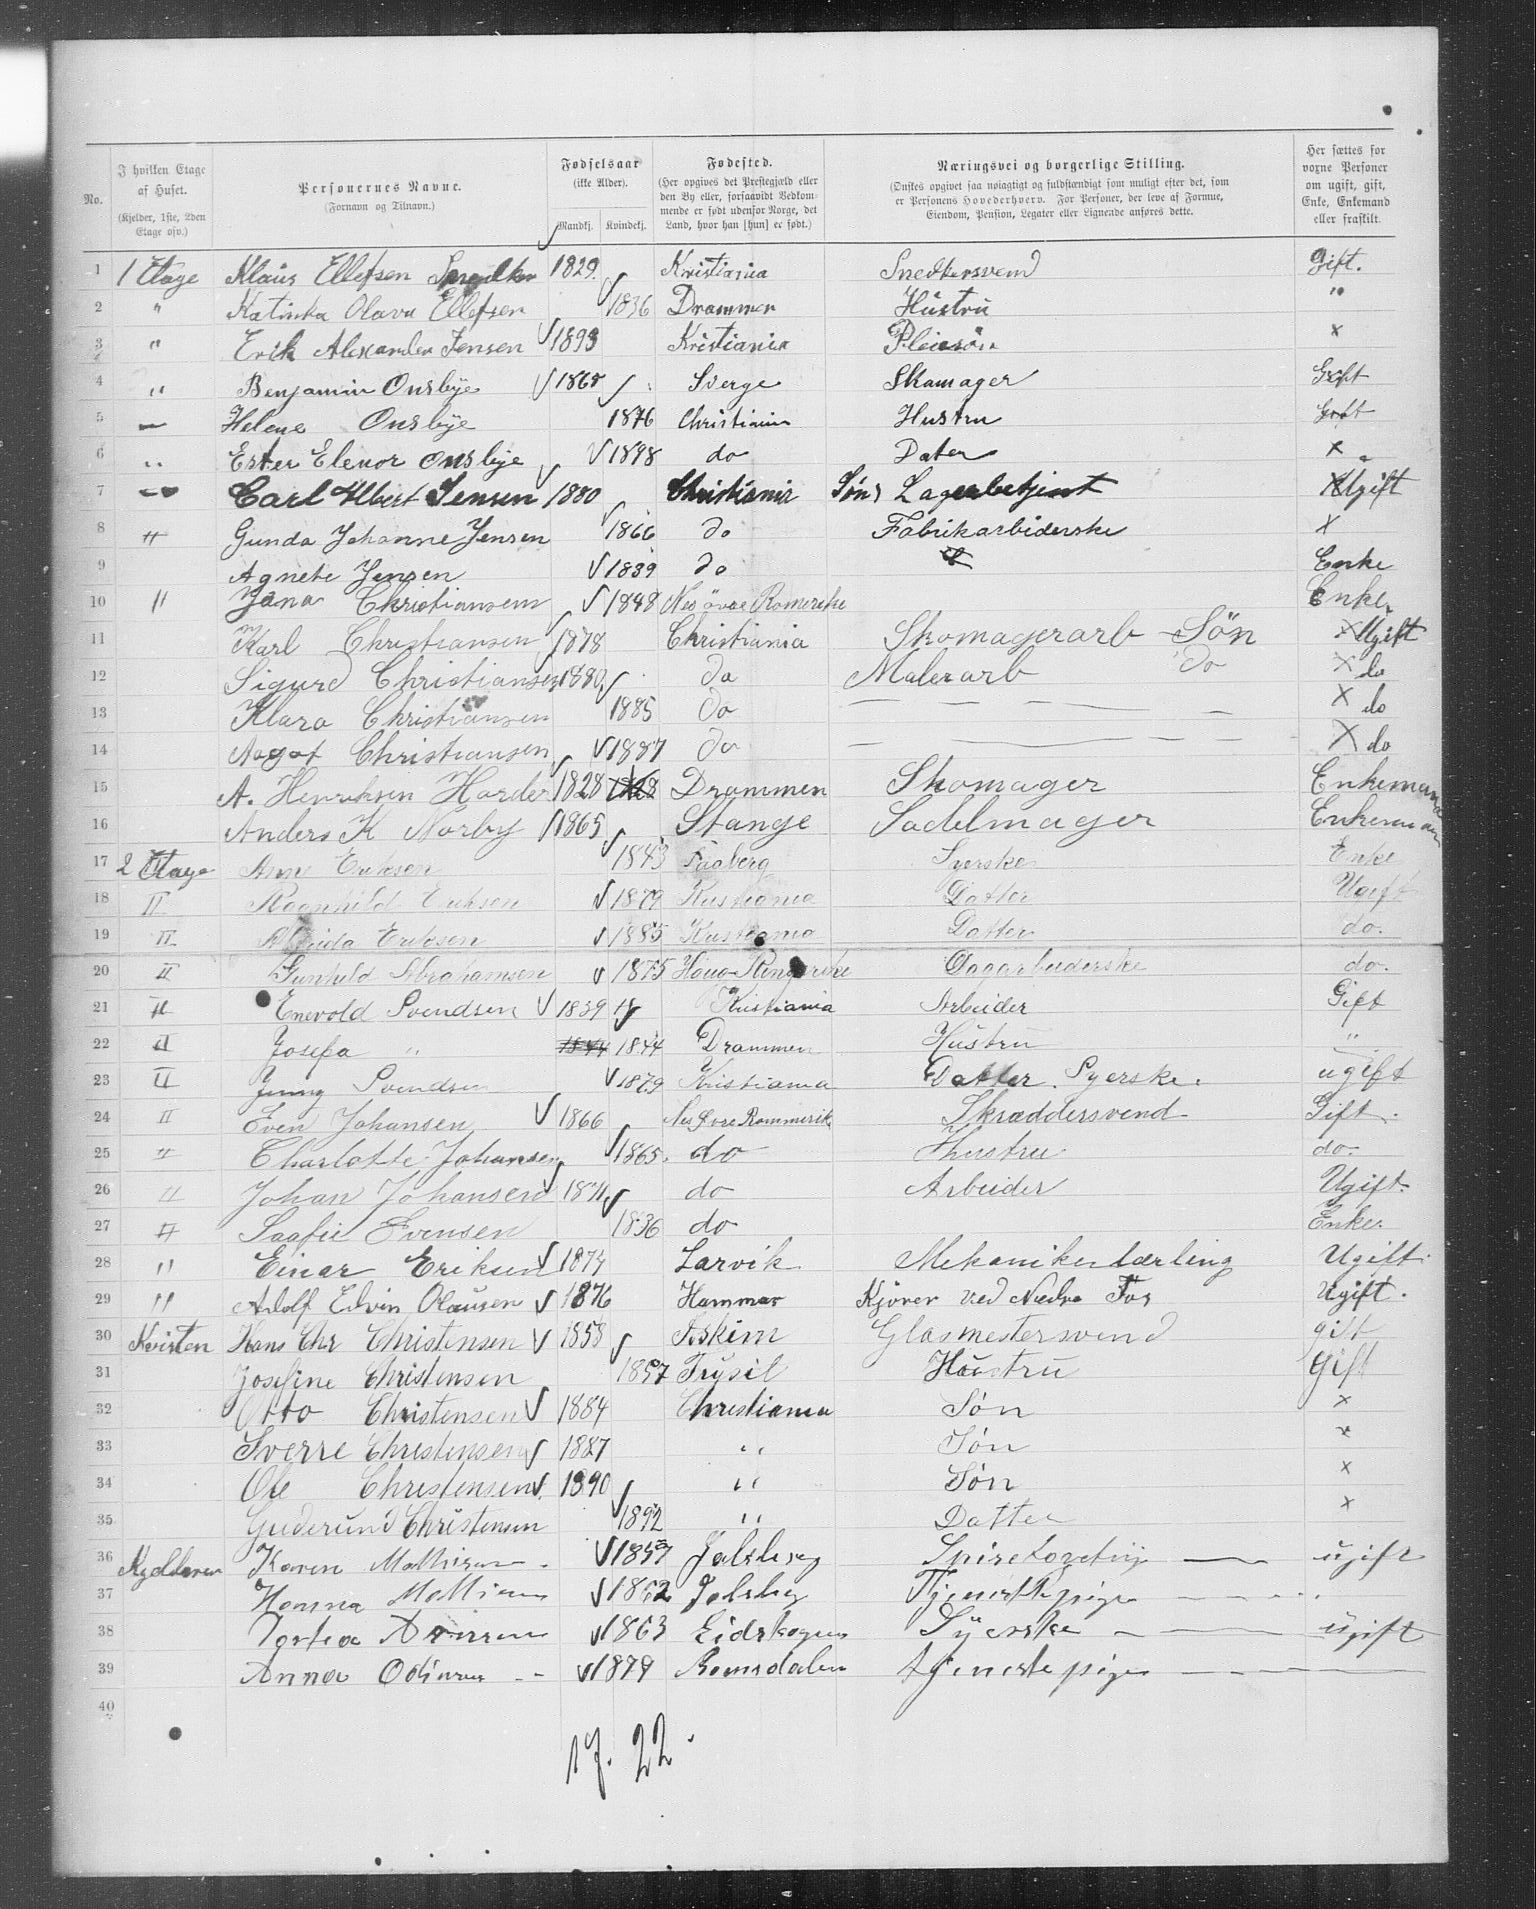 No.
I hvilken Etage af Huset. (Kjelder, 1ste, 2den Etage osv.)
Personernes Navne. (Fornavn og Tilnavn.)
Fødselsaar (ikke Alder). Mandkj. Kvindekj.
Fødested. (Her opgives det Prestegjæld eller den By eller, forsaavidt Vedkommende er født udenfor Norge, det Land, hvor han [hun] er født.)
Næringsvei og borgerlige Stilling. (Ønskes opgivet saa nøiagtigt og fuldstændigt som muligt efter det, som er Personens Hovederhverv. For Personer, der leve af Formue, Eiendom, Pension, Legater eller Lignende anføres dette.
Her sættes for voxne Personer om ugift, gift, Enke, Enkemand eller fraskilt.
1 1 Etage Klaus Ellefsen 1829 Kristiania Snedkersvend Gift.
2 " Katinka Olava Ellefsen 1836 Drammen Hustru "
3 " Erik Alexander Jensen 1893 Kristiania Pleiesøn x
4 " Benjamin Onsbye 1868 Sverge Skamager Gift
5 Helene Onsbye 1876 Christiania Hustru Gift
6 " Ester Elenor Onsbye 1898 do Dater x
7 " Carl Albert Jensen 1880 Christiania Søn, Lagerbetjent Ugift
8 " Gunda Johanne Jensen 1866 do Fabrikarbiderske x
9 Agnete Jensen 1839 do Enke
10 " Jana Christiansen 1848 Nes øvre Romerike Enke
11 Karl Christiansen 1878 Christiania Skomagerarb - Søn x Ugift
12 Sigurd Christiansen 1880 do Malerarb do x do
13 Klara Christiansen 1885 do x do
14 Aagot Christiansen 1887 do x do
15 A. Henriksen Harder 1828 Drammen Skomager Enkemand
16 Anders K Norby 1865 Stange Sadelmager Enkemand
17 2 Etage Ane Eriksen 1843 Faaberg Syerske Enke
18 " Ragnhild Eriksen 1879 Kristiania Datter Ugift
19 " Eriksen 1885 Kristiania Datter do.
20 " Gunhild Abrahamsen 1875 Ringerike Dagarbeiderske do.
21 " Enevold Svendsen 1839 Kristiania Arbeider Gift
22 " Josefa " 1844 1844 Drammen Hustru "
23 " Jenny Svendsen 1879 Kristiania Datter. Syerske. ugift
24 " Even Johansen 1866 Nes Øvre Rommerik Skræddersvend Gift.
25 " Charlotte Johansen 1865. do Hustru do.
26 " Johan Johansen do Arbeider Ugift.
27 " Evensen 1836 do Enke.
28 " Einar Eriksen 1874 Larvik Mekanikerlærling Ugift.
29 " Adolf Edvin Olausen 1876 Hammar Kjører ved Nedre Fos Ugift.
30 Kvisten Hans Chr Christensen 1858 Askim Glasmestersvend gift
31 Josefine Christensen 1857 Trysil Hustru Gift
32 Otto Christensen 1884 Christiania Søn x
33 Sverre Christensen 1887 " Søn x
34 Ole Christensen 1890 " Søn x
35 Guderund Christensen 1892 " Datter x
36 Kjelderen Karen Mathisen 1857 ugift
37 1862 Tjenestepige
38 1863 Eidskogen Syerske ugift
39 Anna 1879 Romsdalen tjenestepige
40
17. 22.